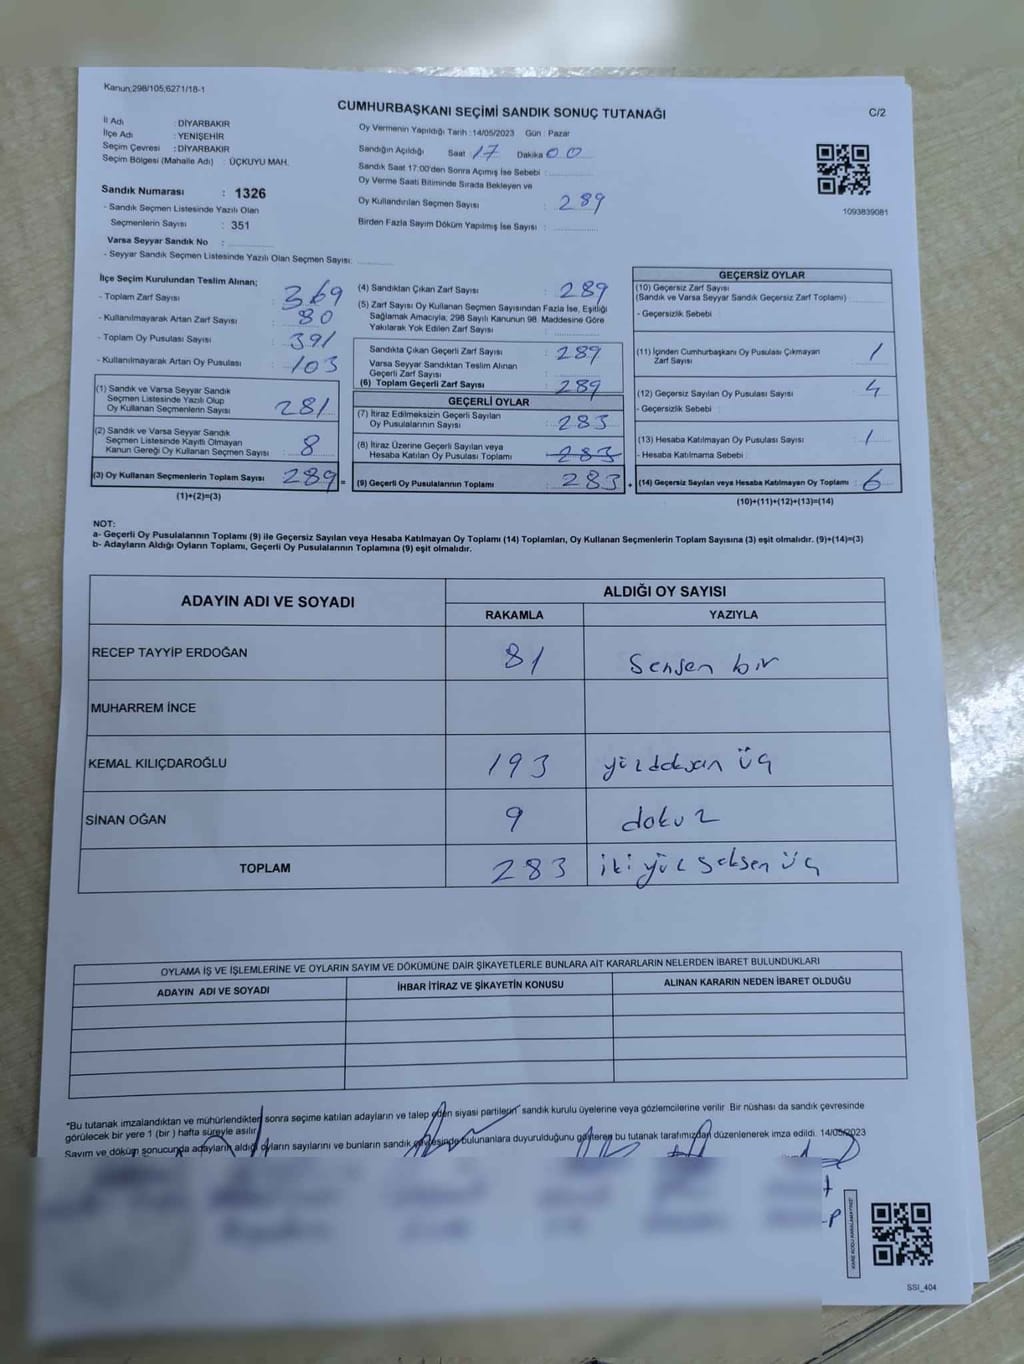 Kanun;298/105;6271/18-1
CUMHURBAŞKANI SEÇİMİ SANDIK SONUÇ TUTANAĞI
C/2
İl Adı : DİYARBAKIR
İlçe Adı : YENİŞEHİR
Seçim Çevresi : DİYARBAKIR
Seçim Bölgesi (Mahalle Adı) : ÜÇKUYU MAH.
Sandık Numarası : 1326
- Sandık Seçmen Listesinde Yazılı Olan
Seçmenlerin Sayısı : 351
Varsa Seyyar Sandık No :
- Seyyar Sandık Seçmen Listesinde Yazılı Olan Seçmen Sayısı:
Oy Vermenin Yapıldığı Tarih :14/05/2023 Gün : Pazar
Sandığın Açıldığı Saat 17 Dakika 00
Sandık Saat 17:00'den Sonra Açımış İse Sebebi :
Oy Verme Saati Bitiminde Sırada Bekleyen ve
Oy Kullandırılan Seçmen Sayısı : 289
Birden Fazla Sayım Döküm Yapılmış İse Sayısı :
1093839081
İlçe Seçim Kurulundan Teslim Alınan;
- Toplam Zarf Sayısı : 369
- Kullanılmayarak Artan Zarf Sayısı : 80
- Toplam Oy Pusulası Sayısı : 391
- Kullanılmayarak Artan Oy Pusulası : 103
(1) Sandık ve Varsa Seyyar Sandık
Seçmen Listesinde Yazılı Olup
Oy Kullanan Seçmenlerin Sayısı : 281
(2) Sandık ve Varsa Seyyar Sandık
Seçmen Listesinde Kayıtlı Olmayan
Kanun Gereği Oy Kullanan Seçmen Sayısı : 8
(3) Oy Kullanan Seçmenlerin Toplam Sayısı : 289 =
(1)+(2)=(3)
(4) Sandıktan Çıkan Zarf Sayısı : 289
(5) Zarf Sayısı Oy Kullanan Seçmen Sayısından Fazla İse, Eşitliği
Sağlamak Amacıyla; 298 Sayılı Kanunun 98. Maddesine Göre
Yakılarak Yok Edilen Zarf Sayısı :
Sandıkta Çıkan Geçerli Zarf Sayısı : 289
Varsa Seyyar Sandıktan Teslim Alınan
Geçerli Zarf Sayısı :
(6) Toplam Geçerli Zarf Sayısı : 289
GEÇERLİ OYLAR
(7) İtiraz Edilmeksizin Geçerli Sayılan
Oy Pusulalarının Sayısı : 283
(8) İtiraz Üzerine Geçerli Sayılan veya
Hesaba Katılan Oy Pusulası Toplamı : 283
(9) Geçerli Oy Pusulalarının Toplamı : 283 +
GEÇERSİZ OYLAR
(10) Geçersiz Zarf Sayısı
(Sandık ve Varsa Seyyar Sandık Geçersiz Zarf Toplamı)
- Geçersizlik Sebebi :
(11) İçinden Cumhurbaşkanı Oy Pusulası Çıkmayan
Zarf Sayısı : 1
(12) Geçersiz Sayılan Oy Pusulası Sayısı : 4
- Geçersizlik Sebebi :
(13) Hesaba Katılmayan Oy Pusulası Sayısı : 1
- Hesaba Katılmama Sebebi :
(14) Geçersiz Sayılan veya Hesaba Katılmayan Oy Toplamı : 6
(10)+(11)+(12)+(13)=(14)
NOT:
a- Geçerli Oy Pusulalarının Toplamı (9) ile Geçersiz Sayılan veya Hesaba Katılmayan Oy Toplamı (14) Toplamları, Oy Kullanan Seçmenlerin Toplam Sayısına (3) eşit olmalıdır. (9)+(14)=(3)
b- Adayların Aldığı Oyların Toplamı, Geçerli Oy Pusulalarının Toplamına (9) eşit olmalıdır.
ADAYIN ADI VE SOYADI
ALDIĞI OY SAYISI
RAKAMLA YAZIYLA
RECEP TAYYİP ERDOĞAN 81 Seksen bir
MUHARREM İNCE
KEMAL KILIÇDAROĞLU 193 yüzdoksan üç
SİNAN OĞAN 9 dokuz
TOPLAM 283 iki yüz seksen üç
OYLAMA İŞ VE İŞLEMLERİNE VE OYLARIN SAYIM VE DÖKÜMÜNE DAİR ŞİKAYETLERLE BUNLARA AİT KARARLARIN NELERDEN İBARET BULUNDUKLARI
ADAYIN ADI VE SOYADI İHBAR İTİRAZ VE ŞİKAYETİN KONUSU ALINAN KARARIN NEDEN İBARET OLDUĞU
"Bu tutanak imzalandıktan ve mühürlendikten sonra seçime katılan adayların ve talep eden siyasi partilerin sandık kurulu üyelerine veya gözlemcilerine verilir Bir nüshası da sandık çevresinde
görülecek bir yere 1 (bir ) hafta süreyle asılır.
Sayım ve döküm sonucunda adayların aldığı oyların sayılarını ve bunların sandık çevresinde bulunanlara duyurulduğunu gösteren bu tutanak tarafımızdan düzenlenerek imza edildi. 14/05/2023
SSİ_404